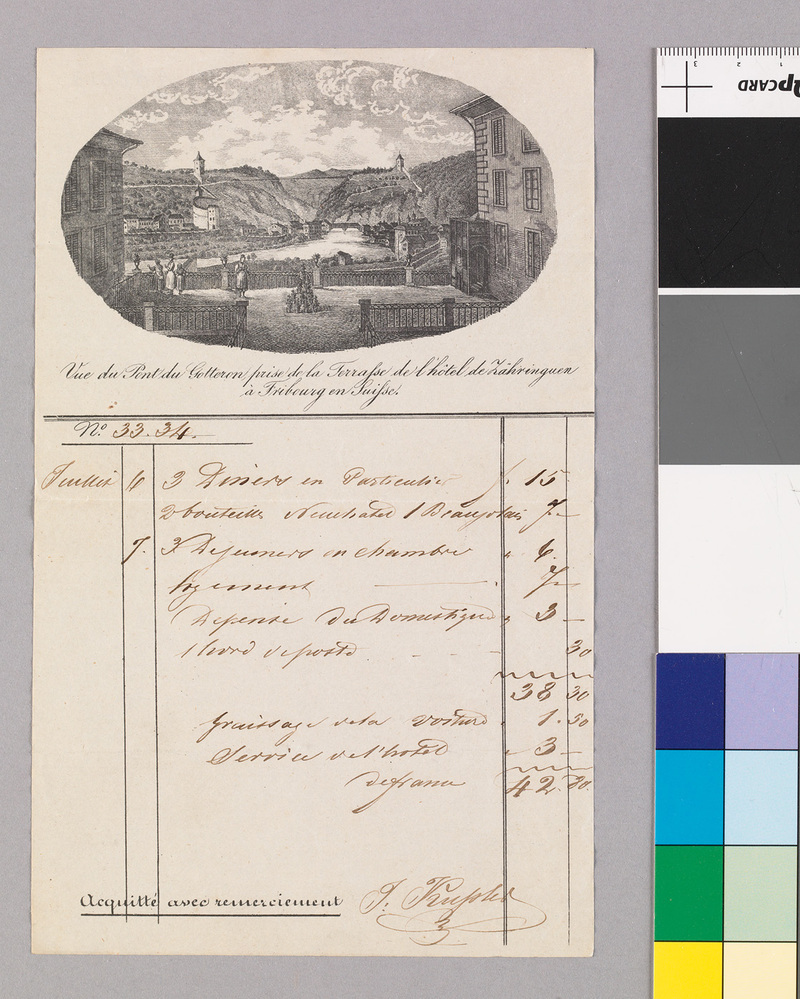 Vue du Pont du Gotteron prise de la Terrasse de l'hôtel de Zähringuen
à Fribourg en Suisse.
N.º 33.34.
Juillet 6 3 Diners en Particulier f. 15
2 bouteilles Neuchatel 1 Beaujolais 7.-
7. 3 Dejeuners en chambre " 6.
logement 7.-
Depense du Domestique " 3 -
30
38 30
graissage de la voiture 1.50
Service de l'hotel 3 -
de france 42.80.
Acquitté avec remerciement J.
3 2 1
CARD